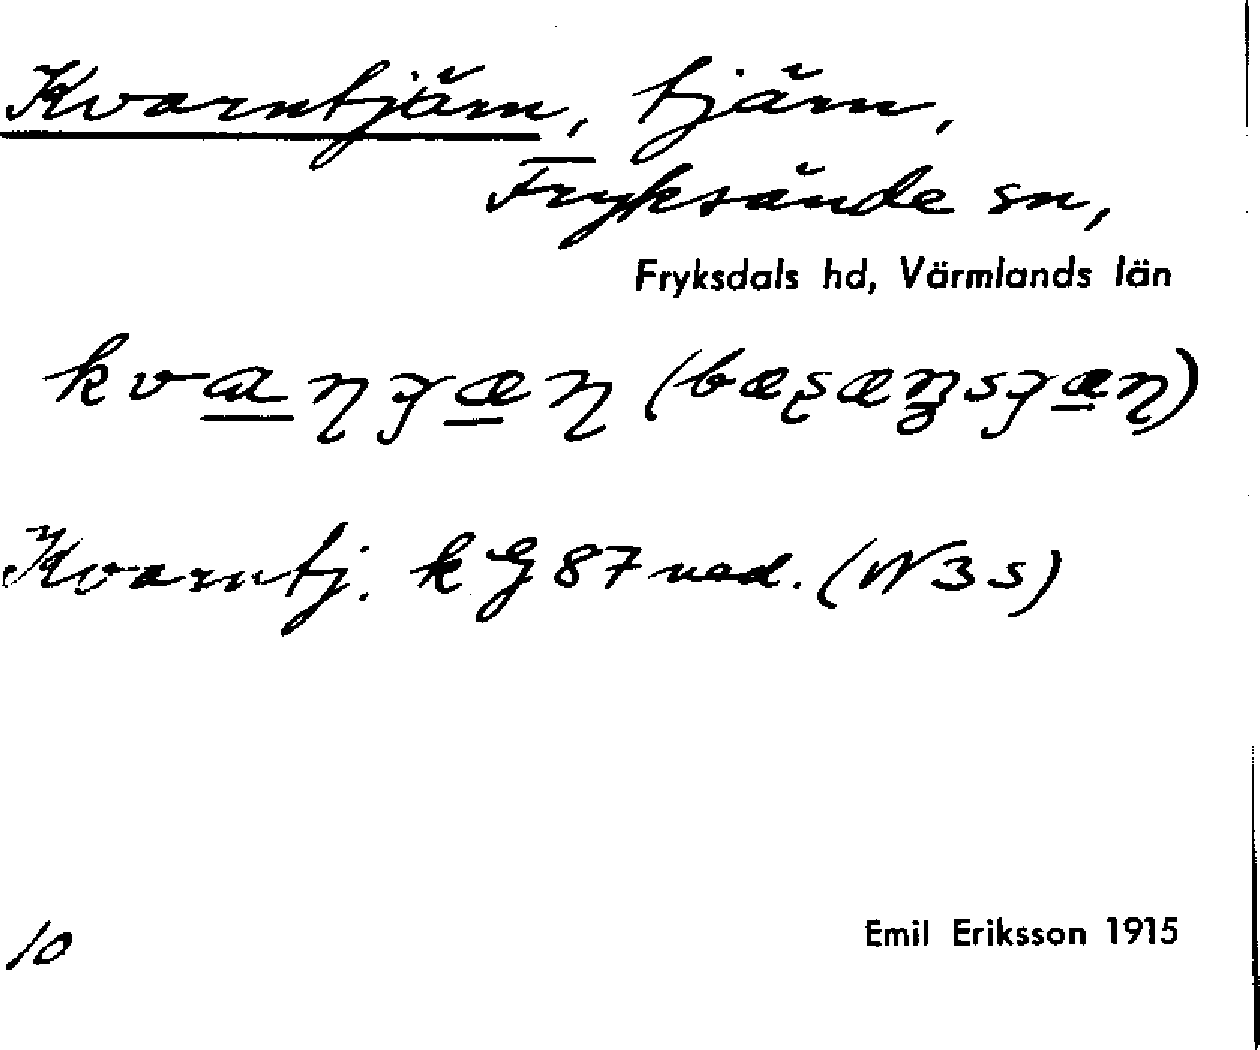 Kvarntjärn, tjärn,
Fryksände sn,
Fryksdals hd, Värmlands län
Kvarntj. k G 87 ned. (N 3 s)
10
Emil Eriksson 1915